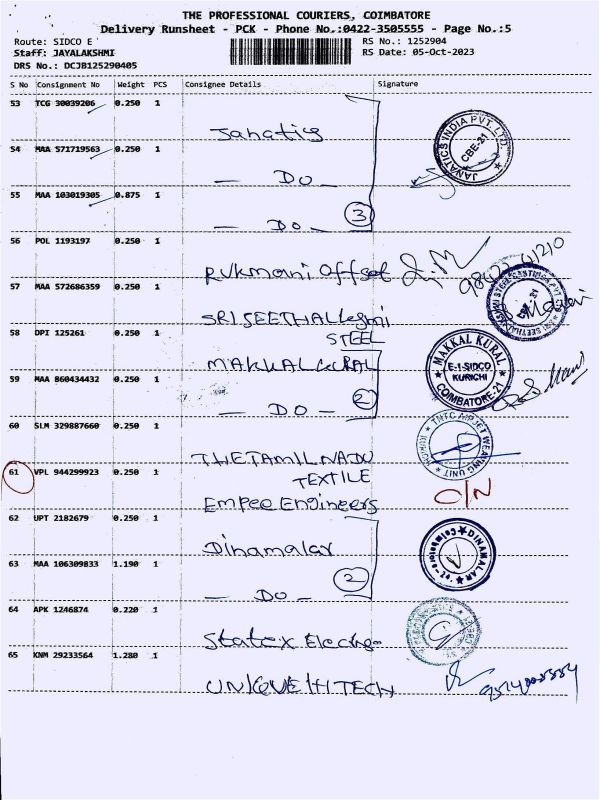 THE PROFESSIONAL COURIERS, COIMBATORE
Delivery Runsheet - PCK - Phone No.:0422-3505555 - Page No.:5
Route: SIDCO E RS No.: 1252904
Staff: JAYALAKSHMI RS Date: 05-Oct-2023
DRS No.: DCJB125290405
S No Consignment No Weight PCS Consignee Details Signature
53 TCG 30039206 0.250 1
Janatics
JANATICS INDIA PVT. LTD. CBE-21
54 MAA 571719563 0.250 1
— Do —
55 MAA 103019305 0.875 1
— Do — 3
56 POL 1193197 0.250 1
Rukmani Offset
57 MAA 572686359 0.250 1
SRI SEETHALakshmi
STEEL
58 DPI 125261 0.250 1
MAKKAL KURAL
MAKKAL KURAL E-1-SIDCO KURICHI COIMBATORE-21
59 MAA 860434432 0.250 1
— DO — 2
60 SLM 329887660 0.250 1
THE TAMIL NADU
TEXTILE
TNTC AIRJET WEAVING UNIT
61 VPL 944299923 0.250 1
Empee Engineers C/N
62 UPT 2182679 0.250 1
Dinamalar
DINAMALAR Coimbatore
63 MAA 106309833 1.190 1
— Do — 2
64 APK 1246874 0.220 1
Statex Electro
65 KNM 29233564 1.280 1
UNIQUE HITECH